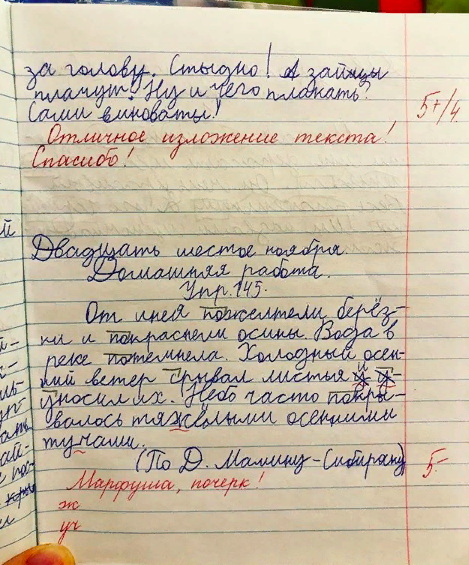 за голову. Стыдно! А зайцы
плачут. Ну и чего плакать?
Сами виноваты!
5+/4
Отличное изложение текста!
Спасибо!
Двадцать шестое ноября.
Домашняя работа.
Упр. 145.
От инея пожелтели берёз-
ки и покраснели осины. Вода в
реке потемнела. Холодный осен-
ний ветер срывал листья и у-
уносил их. Небо часто покры-
валось тяжёлыми осенними
тучами.
(По Д. Мамину-Сибиряку)
5-
Марфуша, почерк!
ж
уч